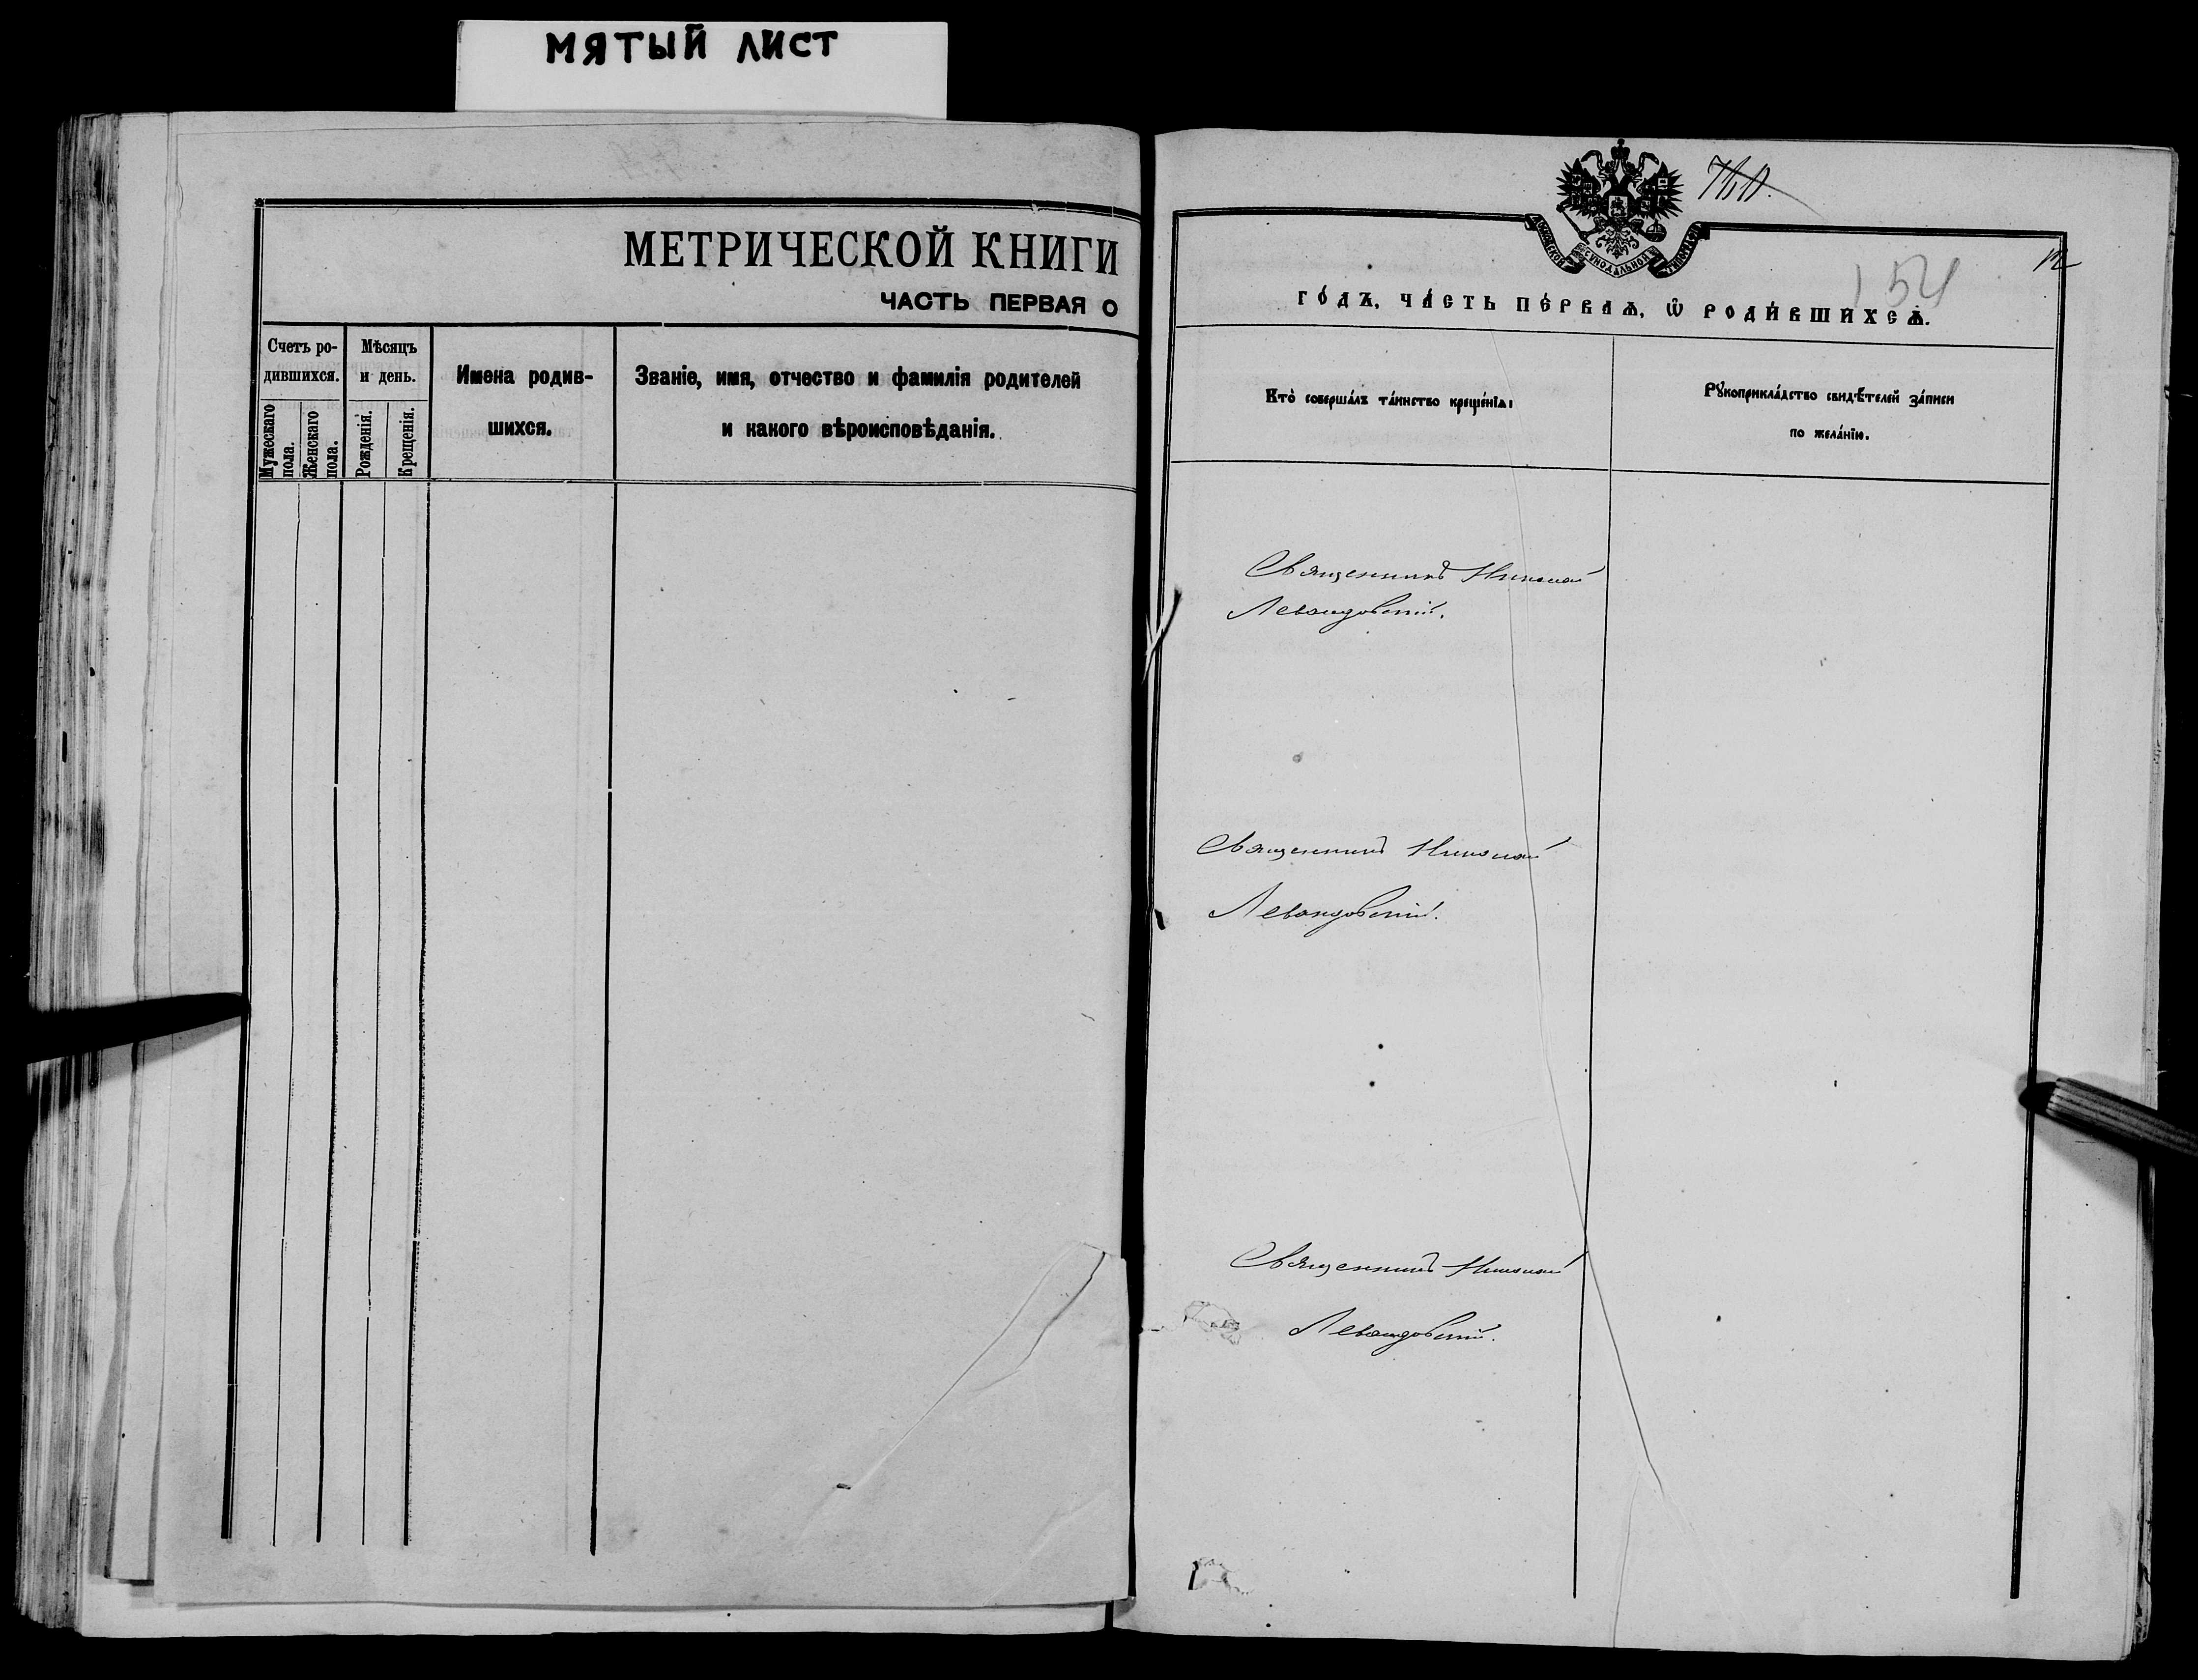 МЯТЫЙ ЛИСТ
МЕТРИЧЕСКОЙ КНИГИ
ЧАСТЬ ПЕРВАЯ О
Счетъ ро-
дившихся.
Мужескаго
пола.
Женскаго
пола.
Мѣсяцъ
и день.
Рожденія.
Крещенія.
Имена родив-
шихся.
Званіе, имя, отчество и фамилія родителей
и какого вѣроисповѣданія.
154
го́дъ, ча́сть пе́рваѧ, ѡ҆ роди́вшихсѧ.
Кто̀ соверша́лъ та́инство креще́нїѧ:
Рꙋкоприкла́дство свидѣ́телей за́писи
по жела́нїю.
Священникъ Николай
Левандовскій.
Священникъ Николай
Левандовскій.
Священникъ Николай
Левандовскій.